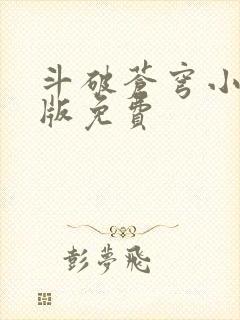 斗破苍穹小
版免费
彭梦飞